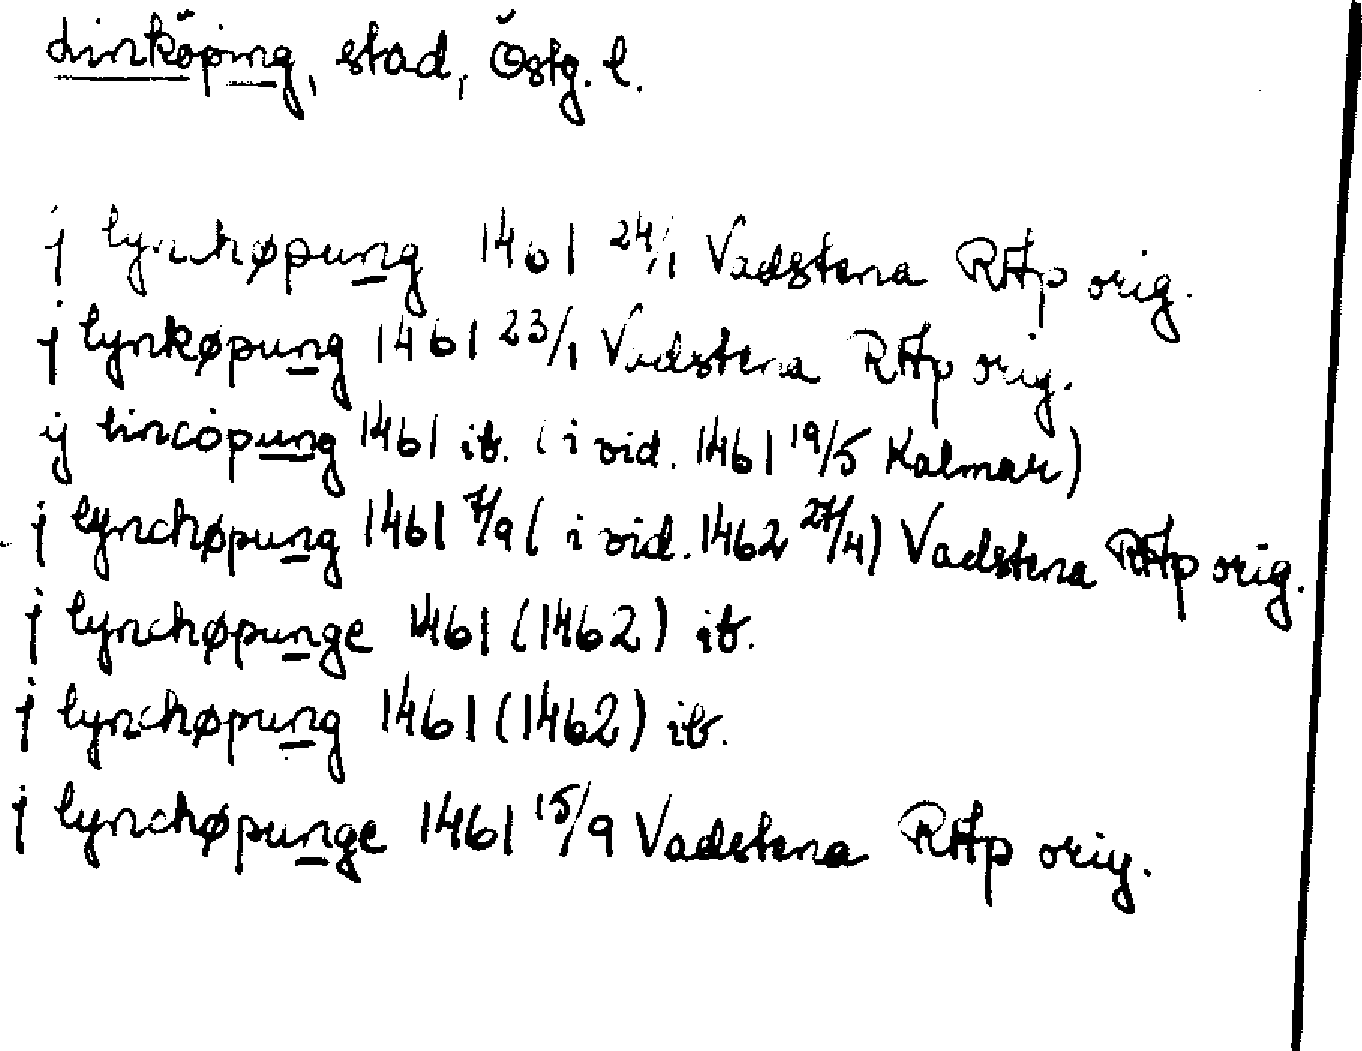 Linköping, stad, Östg. l.
j lynchøpung 1461 24/1 Vadstena RAp orig.
j lynkøpung 1461 23/1 Vadstena RAp orig.
ij lincöpung 1461 ib. (i vid. 1461 19/5 Kalmar)
j lynchøpung 1461 7/9 (i vid. 1462 27/4) Vadstena RAp orig.
j lynchøpunge 1461 (1462) ib.
j lynchøpung 1461 (1462) ib.
j lynchøpunge 1461 15/9 Vadstena RAp orig.